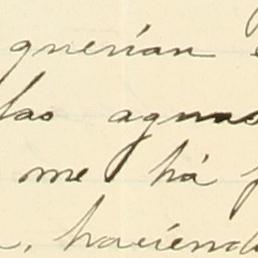 querían
las aguas
me há
haciendo